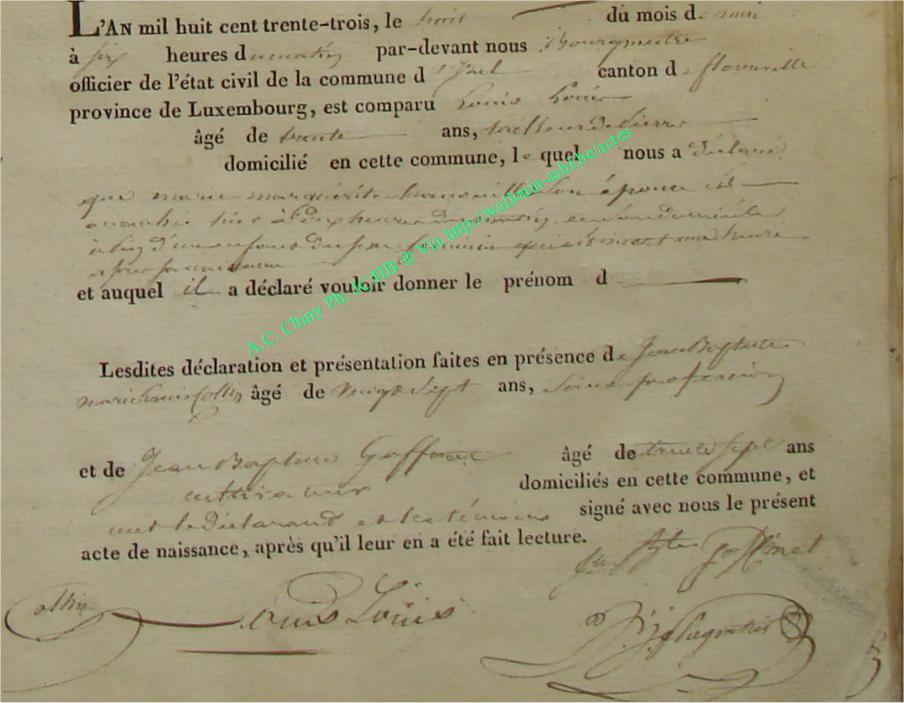 L'AN mil huit cent trente-trois, le huit du mois de mai
à six heures du matin par-devant nous Bourgmestre
officier de l'état civil de la commune d'Izel canton de florenville
province de Luxembourg, est comparu Louis Louis
âgé de trente ans, tailleur de pierre
domicilié en cette commune, lequel nous a déclaré
que marie marguerite son épouse est
accouchée hier à dix heures du matin, en son domicile
à Izel d'un enfant du sexe féminin qui est mort une heure
après sa naissance
et auquel il a déclaré vouloir donner le prénom d
Lesdites déclaration et présentation faites en présence de Jean Baptiste
marie Louis Collin âgé de vingt sept ans, sans profession
et de Jean Baptiste Goffinet âgé de trente sept ans
cultivateur domiciliés en cette commune, et
ont le déclarant et les témoins signé avec nous le présent
acte de naissance, après qu'il leur en a été fait lecture.
Jn Bte Goffinet
Collin Louis Louis
A.C. Chiny Ph. @ Via http://wallonia-asbl.be/actes